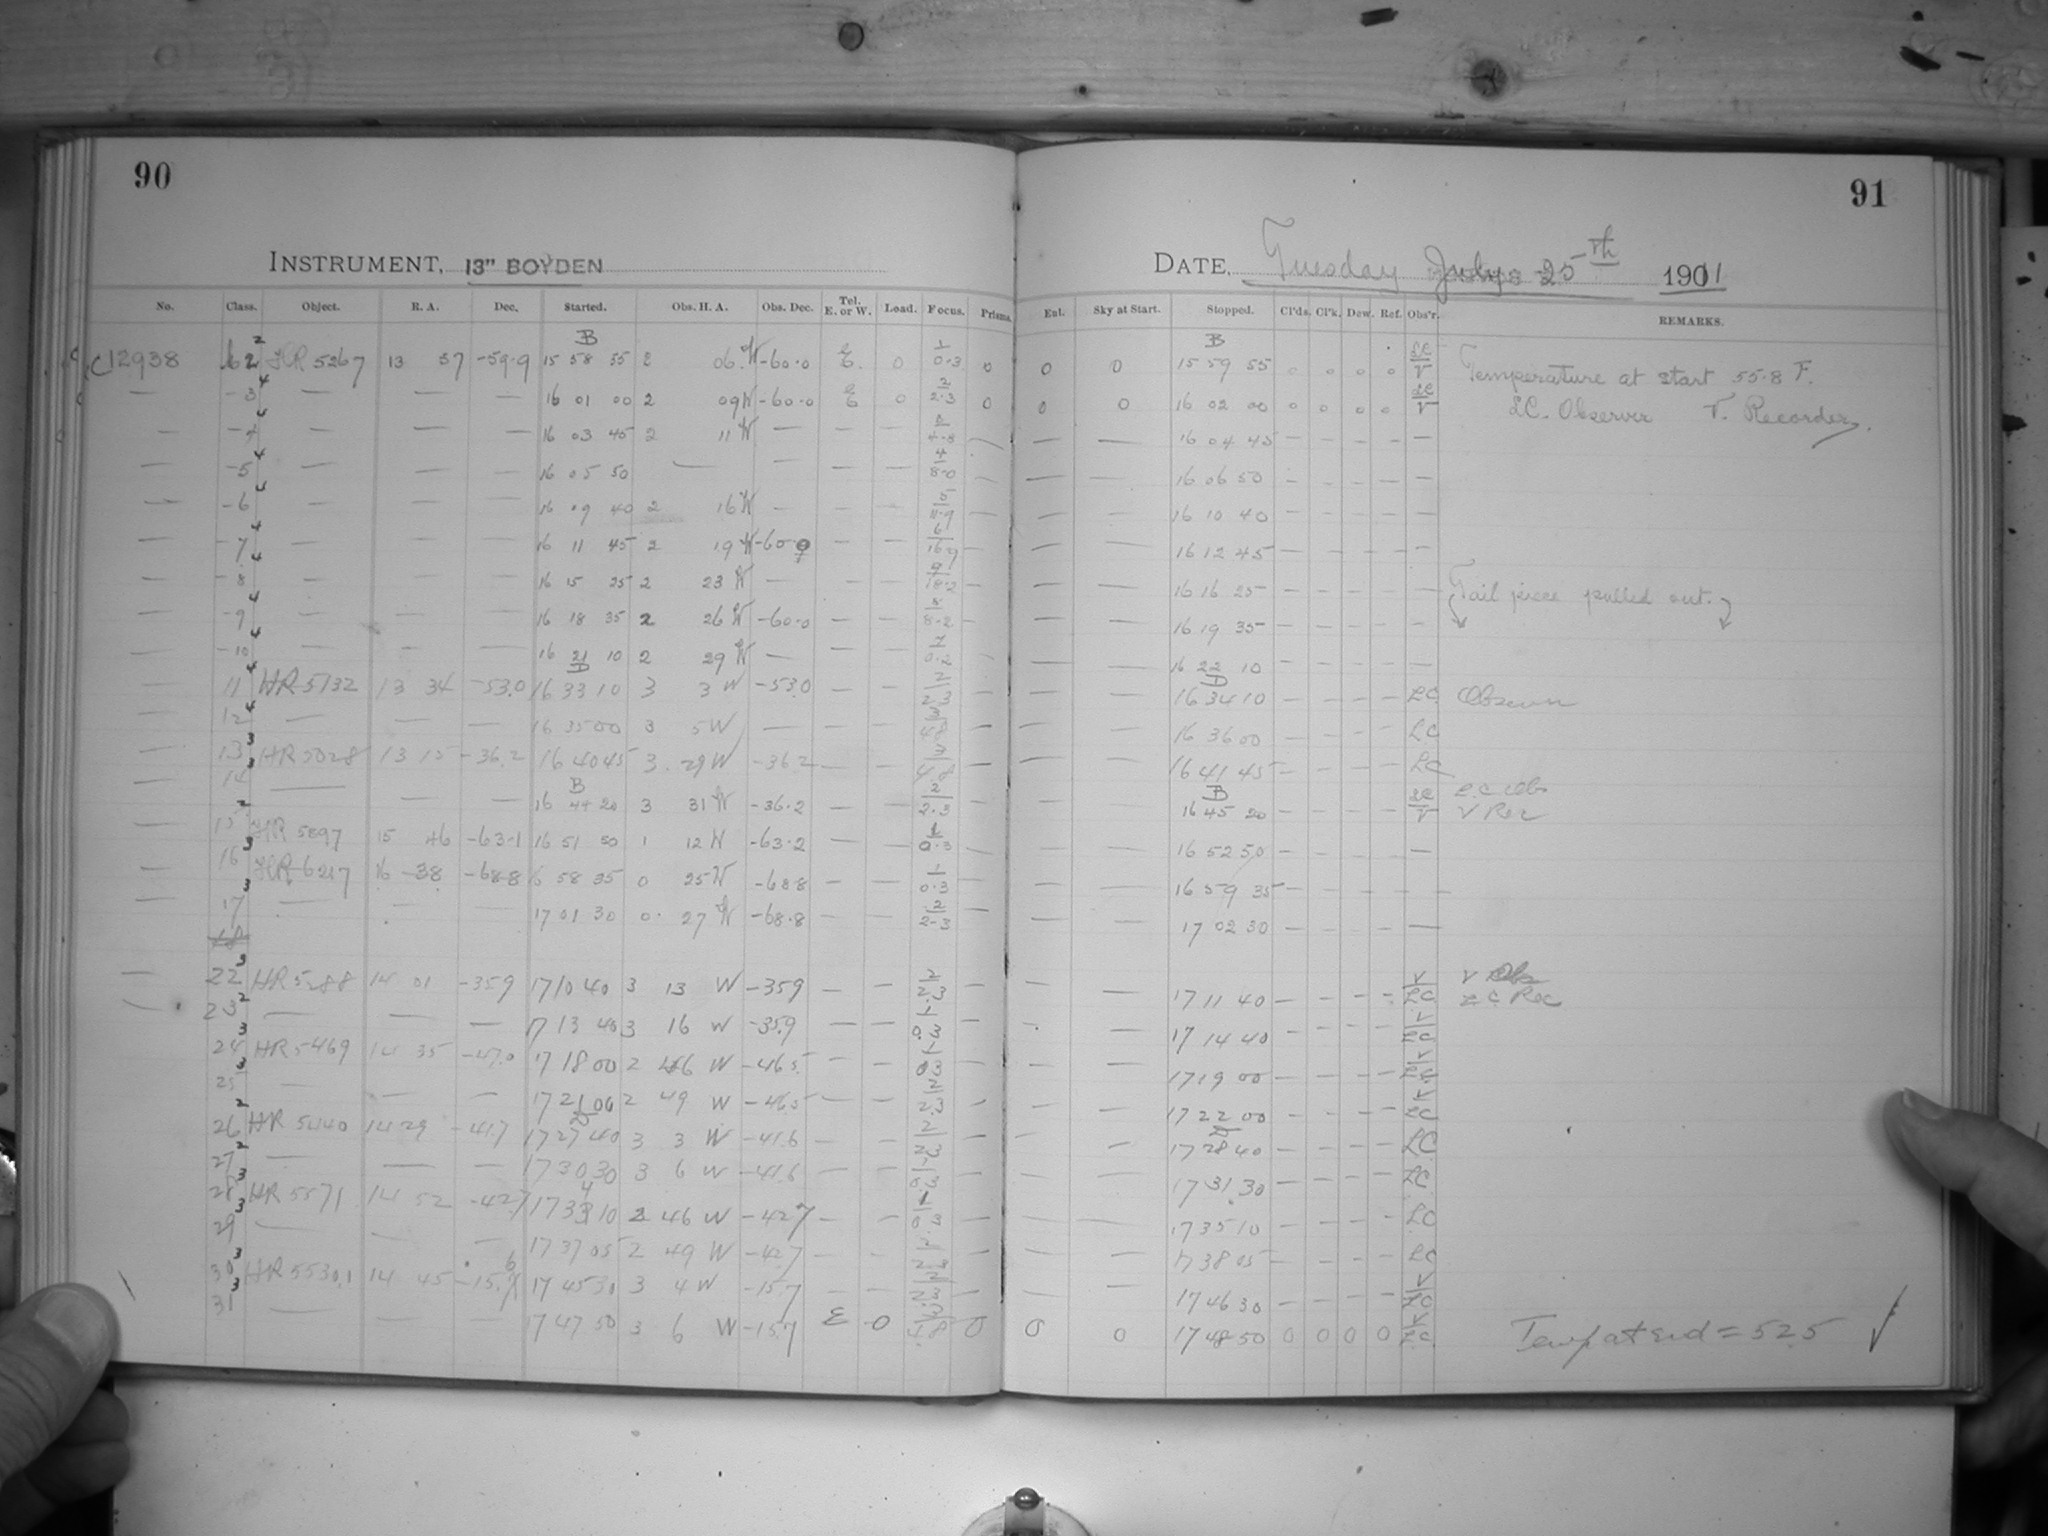 90
91
INSTRUMENT, 13" BOYDEN
DATE, Tuesday July 25th 1911
No. Class. Object. R. A. Dec. Started. Obs. H. A. Obs. Dec. Tel. E. or W. Load. Focus. Prisms. Ent. Sky at Start. Stopped. Cl'ds. Cl'k. Dew. Ref. Obs'r. REMARKS.
B B
C12938 62 HR 5267 13 57 -59.9 15 58 55 2 06 W -60.0 E. 0 1 0.3 0 0 0 15 59 55 0 0 0 0 LC V Temperature at start 55.8 F.
— -3 — — — 16 01 00 2 09 W -60.0 E 0 2 2.3 0 0 0 16 02 00 0 0 0 0 LC V LC. Observer V. Recorder.
— -4 — — — 16 03 45 2 11 W — — — — — — 16 04 45 — — — — —
— -5 — — — 16 05 50 — — — — 4 8.0 — — — 16 06 50 — — — — —
— -6 — — — 16 09 40 2 16 W — — — — — — 16 10 40 — — — — —
— -7 — — — 16 11 45 2 19 W -60.0 — — — — — 16 12 45 — — — — —
— -8 — — — 16 15 25 2 23 W — — — — — — 16 16 25 — — — — — Tail piece pulled out.
— -9 — — — 16 18 35 2 26 W -60.0 — — 8 8.2 — — — 16 19 35 — — — — —
— -10 — — — 16 21 10 2 29 W — — — 7 0.2 — — — 16 22 10 — — — — —
D D
— 11 HR 5132 13 34 -53.0 16 33 10 3 3 W -53.0 — — 2 2.3 — — — 16 34 10 — — — — LC Observer
— 12 — — — 16 35 00 3 5 W — — — 3 4.8 — — — 16 36 00 — — — — LC
— 13 HR 5028 13 15 -36.2 16 40 45 3 29 W -36.2 — — — — — 16 41 45 — — — — LC
B B
— 14 — — — 16 44 20 3 31 W -36.2 — — 2 2.3 — — — 16 45 20 — — — — LC V LC Obs V Rec
— 15 HR 5897 15 46 -63.1 16 51 50 1 12 W -63.2 — — 1 0.3 — — — 16 52 50 — — — — —
— 16 HR 6217 16 38 -68.8 16 58 35 0 25 W -68.8 — — 1 0.3 — — — 16 59 35 — — — — —
— 17 — — — 17 01 30 0 27 W -68.8 — — 2 2.3 — — — 17 02 30 — — — — —
18
— 22 HR 5288 14 01 -35.9 17 10 40 3 13 W -35.9 — — 2 2.3 — — — 17 11 40 — — — — V LC V Obs LC Rec
— 23 — — — 17 13 40 3 16 W -35.9 — — 1 0.3 — — — 17 14 40 — — — — V LC
24 HR 5469 14 35 -47.0 17 18 00 2 46 W -46.5 — — 1 0.3 — — — 17 19 00 — — — — V LC
25 — — — 17 21 00 2 49 W -46.5 — — 2 2.3 — — — 17 22 00 — — — — V LC
D D
26 HR 5440 14 29 -41.7 17 27 40 3 3 W -41.6 — — 2 2.3 — — — 17 28 40 — — — — LC
27 — — — 17 30 30 3 6 W -41.6 — — 1 0.3 — — — 17 31 30 — — — — LC
28 HR 5571 14 52 -42.7 17 34 10 2 46 W -42.7 — — 1 0.3 — — — 17 35 10 — — — — LC
29 — — — 17 37 05 2 49 W -42.7 — — 2 2.3 — — — 17 38 05 — — — — LC
30 HR 5530.1 14 45 -15.6 17 45 30 3 4 W -15.7 — — 2 2.3 — — — 17 46 30 — — — — V LC
31 — — — 17 47 50 3 6 W -15.7 E 0 3 4.8 0 0 0 17 48 50 0 0 0 0 V LC Temp at end = 52.5 ✓